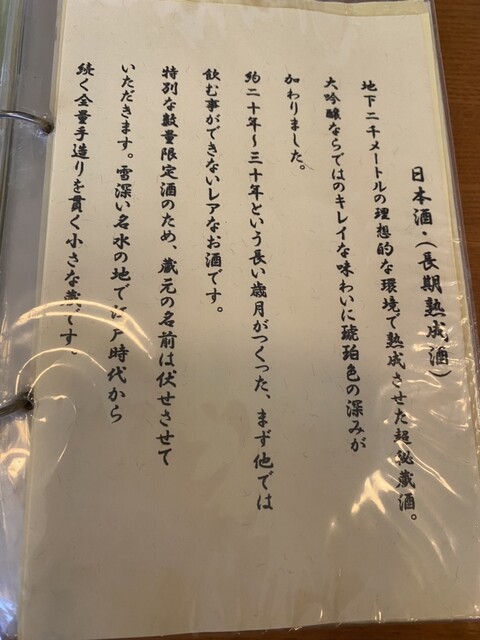 日本酒・（長期熟成酒）
地下二千メートルの理想的な環境で熟成させた超秘蔵酒。
大吟醸ならではのキレイな味わいに琥珀色の深みが
加わりました。
約二十年〜三十年という長い歳月がつくった、まず他では
飲む事ができないレアなお酒です。
特別な数量限定酒のため、蔵元の名前は伏せさせて
いただきます。雪深い名水の地で江戸時代から
続く全量手造りを貫く小さな蔵です。